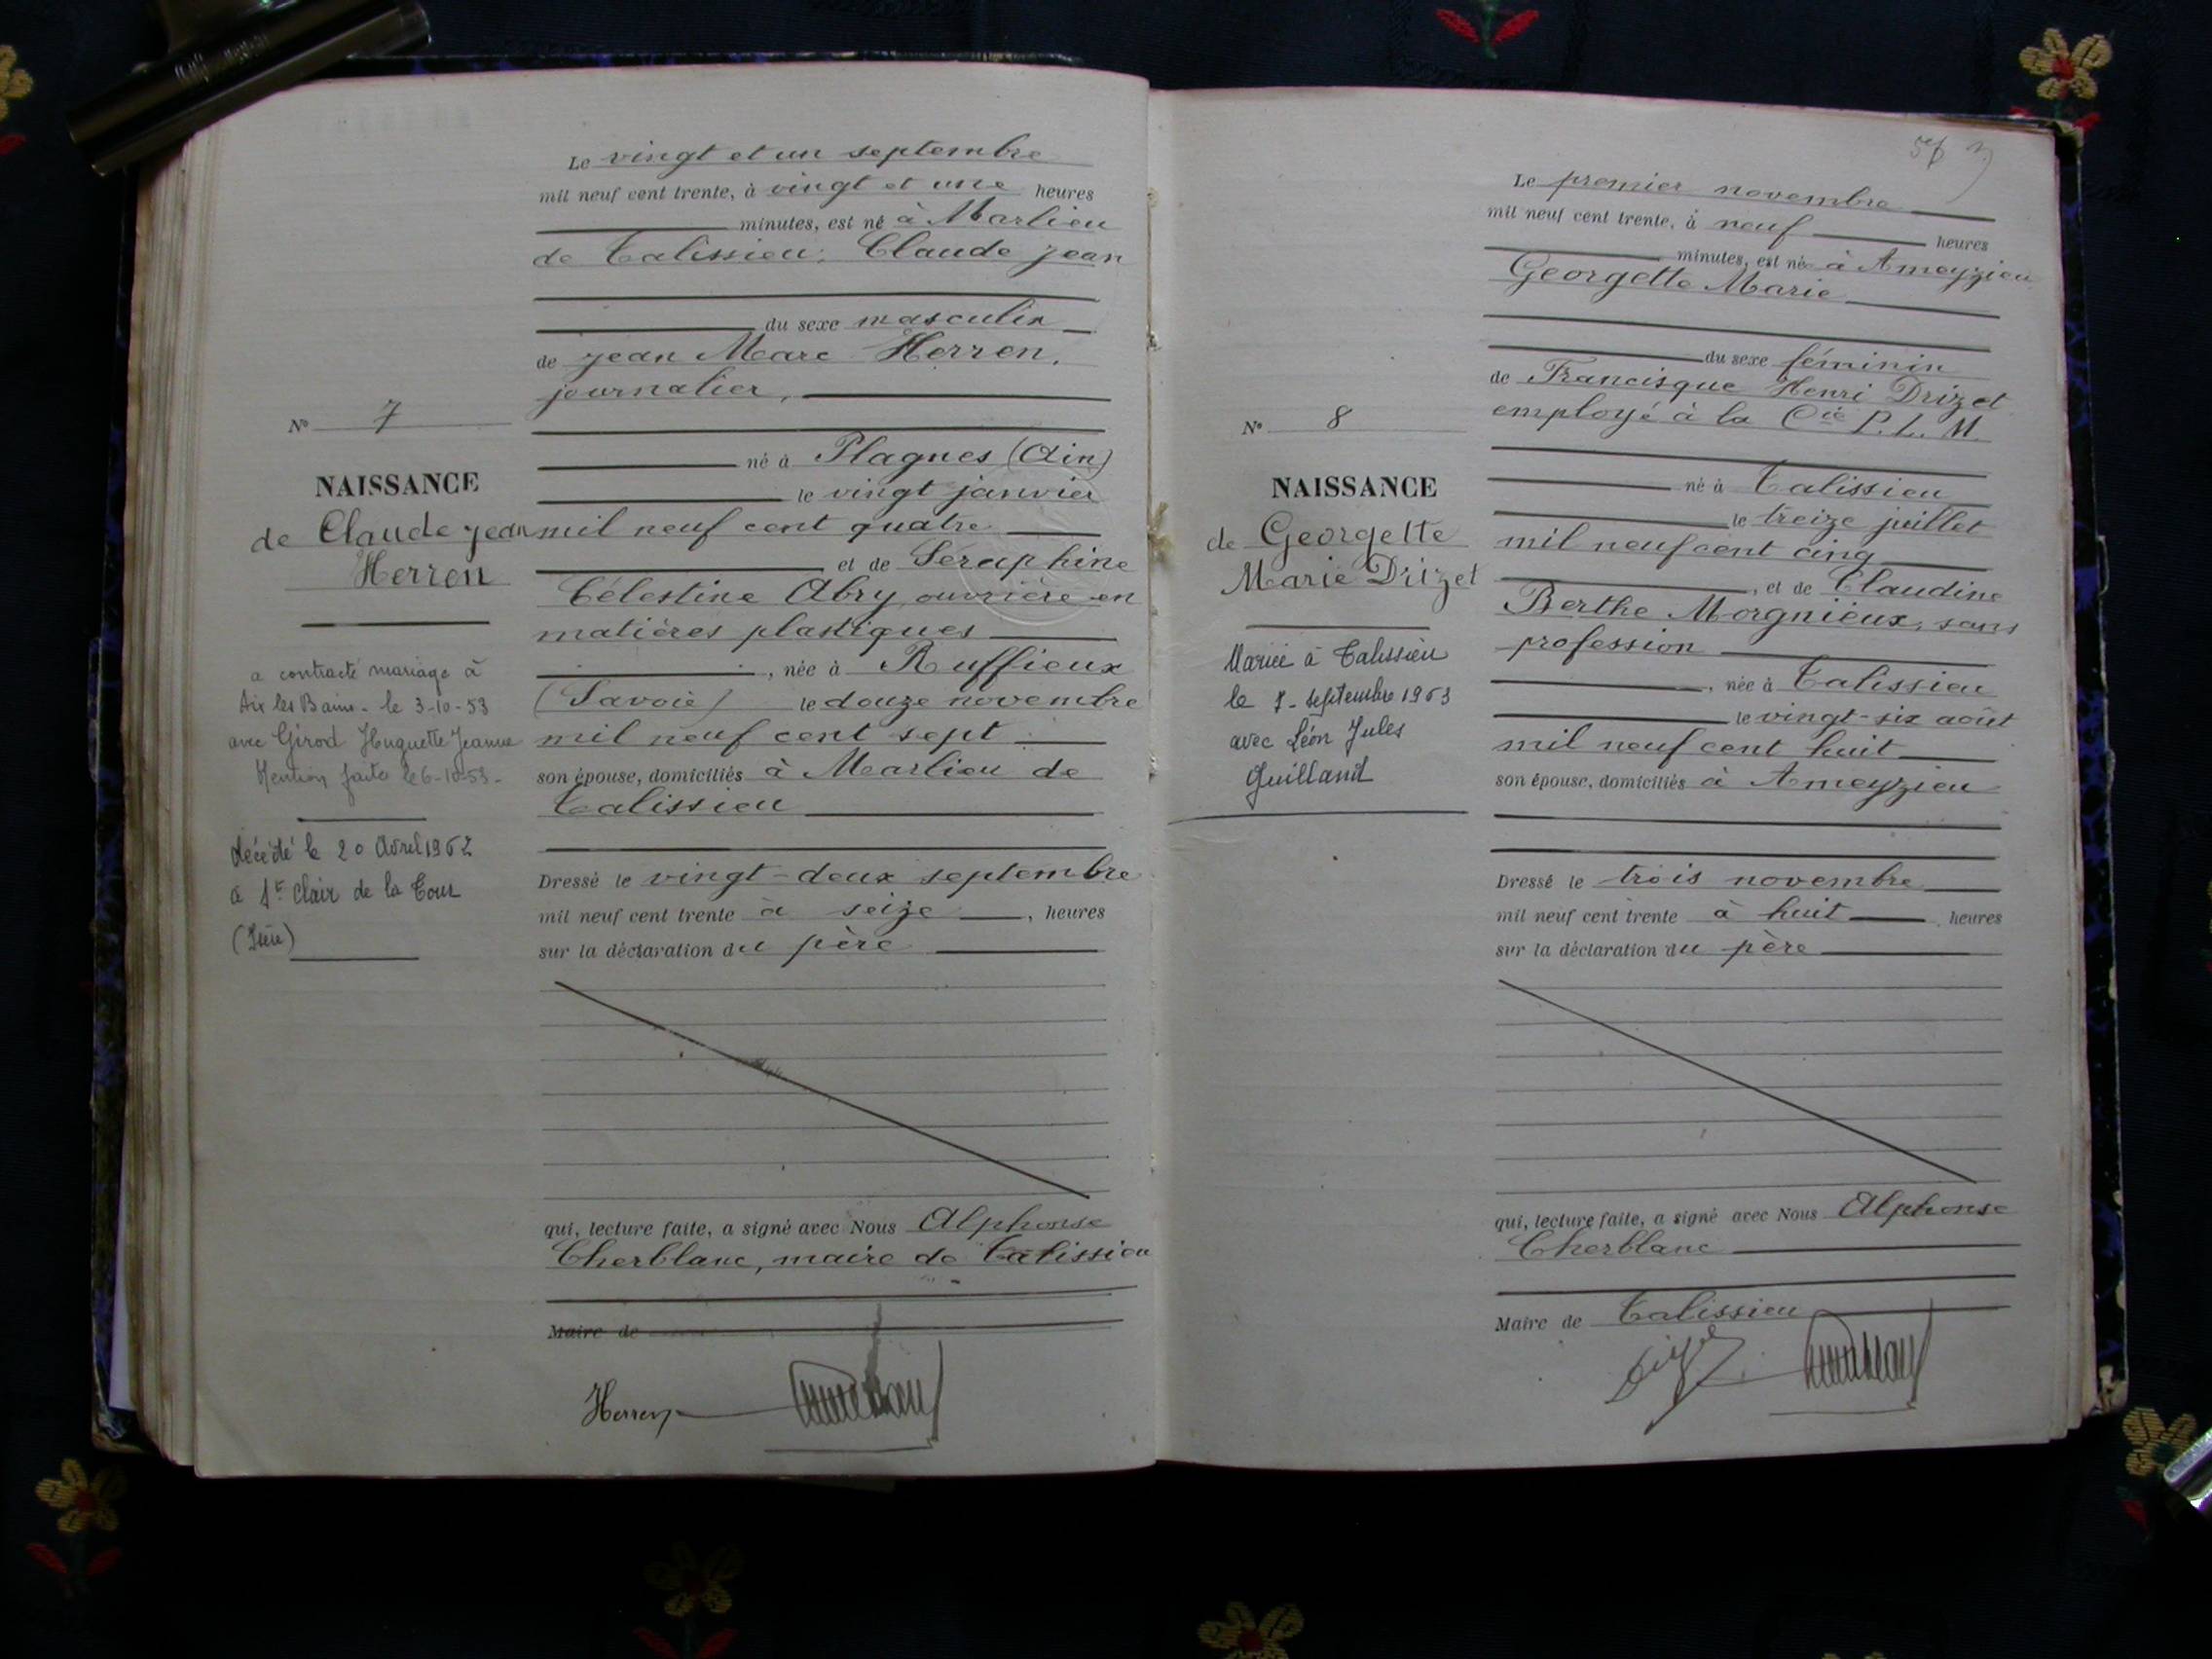 Le vingt et un septembre
mil neuf cent trente, à vingt et une heures
minutes, est né à Marlieu
de Talissieu, Claude jean
du sexe masculin
de jean Marc Herren,
journalier,
N° 7
né à Plagnes (Ain)
le vingt janvier
NAISSANCE
de Claude jean
Herren
mil neuf cent quatre
et de Seraphine
Célestine Abry, ouvrière en
matières plastiques
, née à Ruffieux
(Savoie) le douze novembre
mil neuf cent sept
son épouse, domiciliés à Marlieu de
Talissieu
a contracté mariage à
Aix les Bains - le 3-10-53
avec Girod Huguette Jeanne
Mention faite le 6-10-53-
décédé le 20 Avril 1962
à St Clair de la Tour
(Isère)
Dressé le vingt-deux septembre
mil neuf cent trente à seize , heures
sur la déclaration du père
qui, lecture faite, a signé avec Nous Alphonse
Cherblanc, maire de Talissieu
Maire de
Herren
Le premier novembre
mil neuf cent trente, à neuf heures
minutes, est née à Ameyzieu
Georgette Marie
du sexe féminin
de Francisque Henri Drizet
employé à la Cie P.L.M.
N° 8
né à Talissieu
NAISSANCE
de Georgette
Marie Drizet
le treize juillet
mil neuf cent cinq
, et de Claudine
Berthe Morgnieux, sans
profession
, née à Talissieu
le vingt-six août
mil neuf cent huit
son épouse, domiciliés à Ameyzieu
Mariée à Talissieu
le 7 - septembre 1953
avec Léon Jules
Guilland
Dressé le trois novembre
mil neuf cent trente à huit heures
sur la déclaration du père
qui, lecture faite, a signé avec Nous Alphonse
Cherblanc
Maire de Talissieu